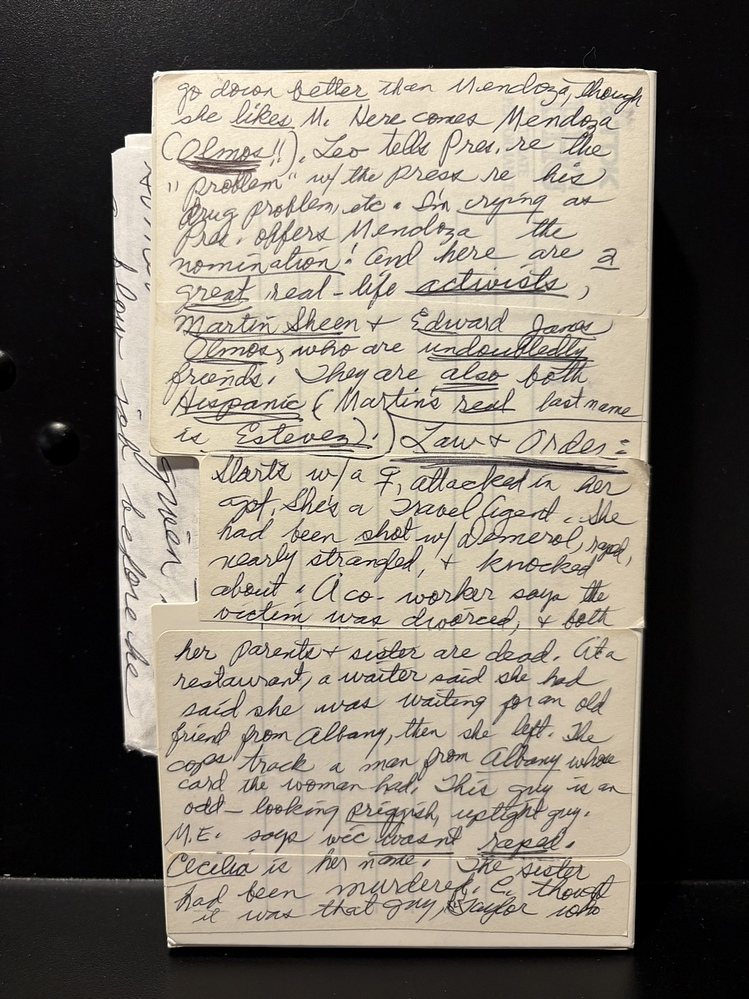 go down better than Mendoza, though
she likes M. Here comes Mendoza
(Olmos!!). Leo tells Pres. re the
"problem" w/ the press re his
drug problem, etc. I'm crying as
Pres. offers Mendoza the
nomination! And here are 2
great real-life activists,
Martin Sheen + Edward James
Olmos, who are undoubtedly
friends. They are also both
Hispanic (Martin's real last name
is Estevez).) Law + Order:
Starts w/ a ♀, attacked in her
apt. She's a Travel Agent. She
had been shot w/ Demerol, raped,
nearly strangled, + knocked
about. A co-worker says the
victim was divorced, + both
her parents + sister are dead. At a
restaurant, a waiter said she had
said she was waiting for an old
friend from Albany, then she left. The
cops track a man from Albany whose
card the woman had. This guy is an
odd-looking priggish, uptight guy.
M.E. says vic wasn't raped.
Cecilia is her name. The sister
had been murdered. C. thought
it was that guy, Taylor who
given
before he